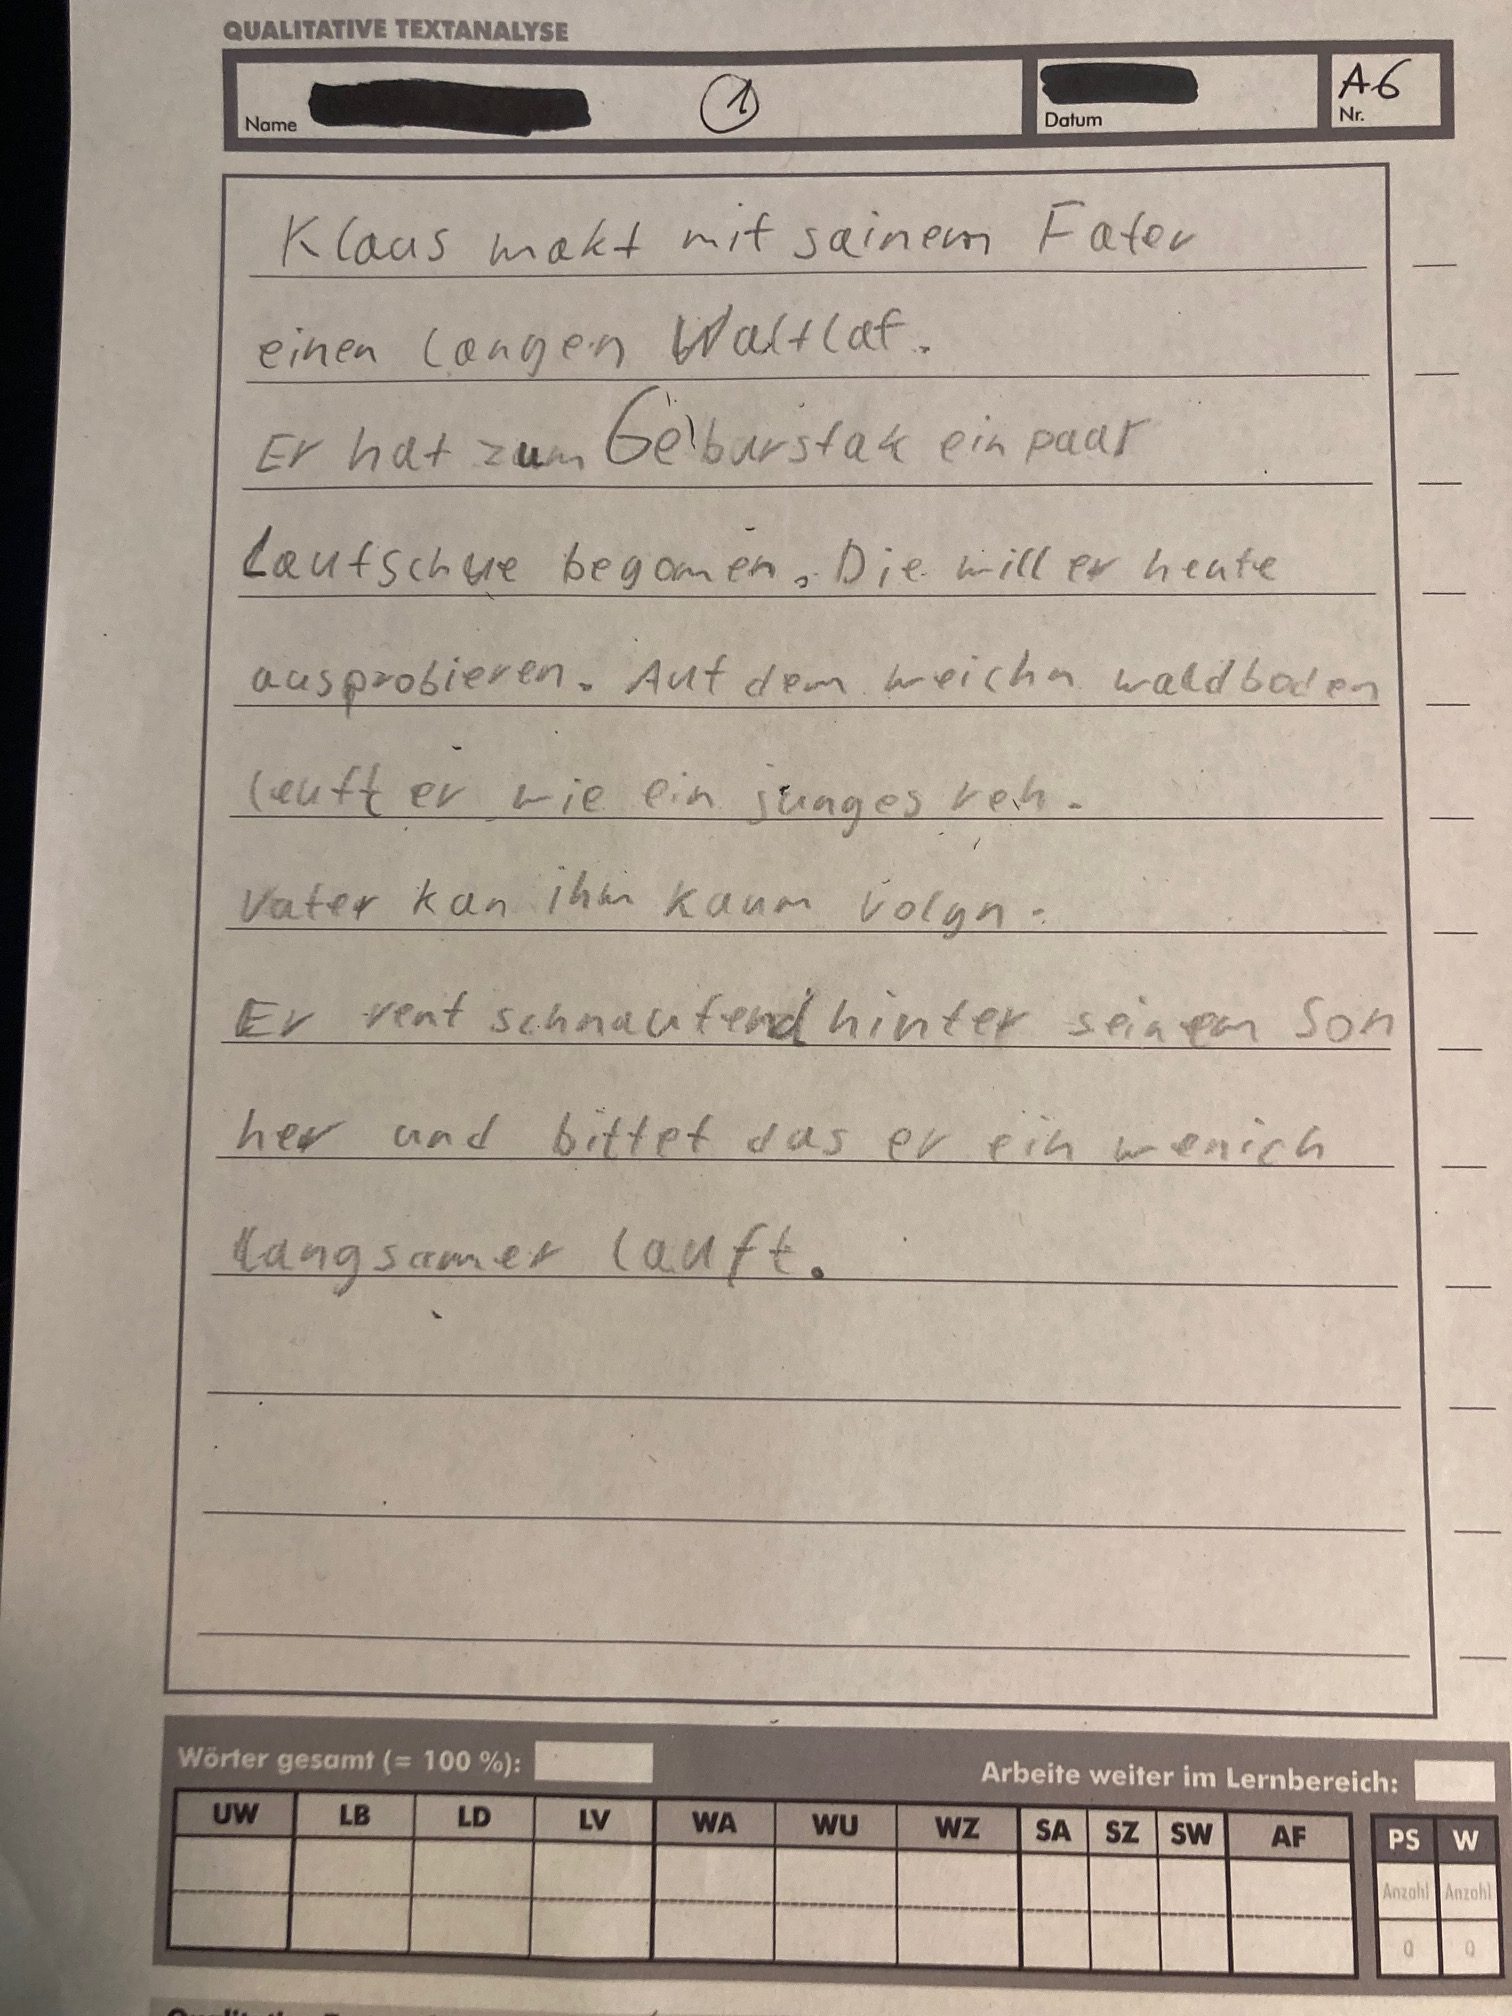 QUALITATIVE TEXTANALYSE
Name 1 Datum A6 Nr.
Klaus makt mit sainem Fater
einen langen Waltlaf.
Er hat zum Geburstak ein paar
Laufschue begomen. Die will er heute
ausprobieren. Auf dem weichn waldboden
leuft er wie ein junges reh.
Vater kan ihm kaum volgn.
Er rent schnaufend hinter seinem Son
her und bittet das er ein wenich
langsamer lauft.
Wörter gesamt (= 100 %): Arbeite weiter im Lernbereich:
UW LB LD LV WA WU WZ SA SZ SW AF PS W
Anzahl Anzahl